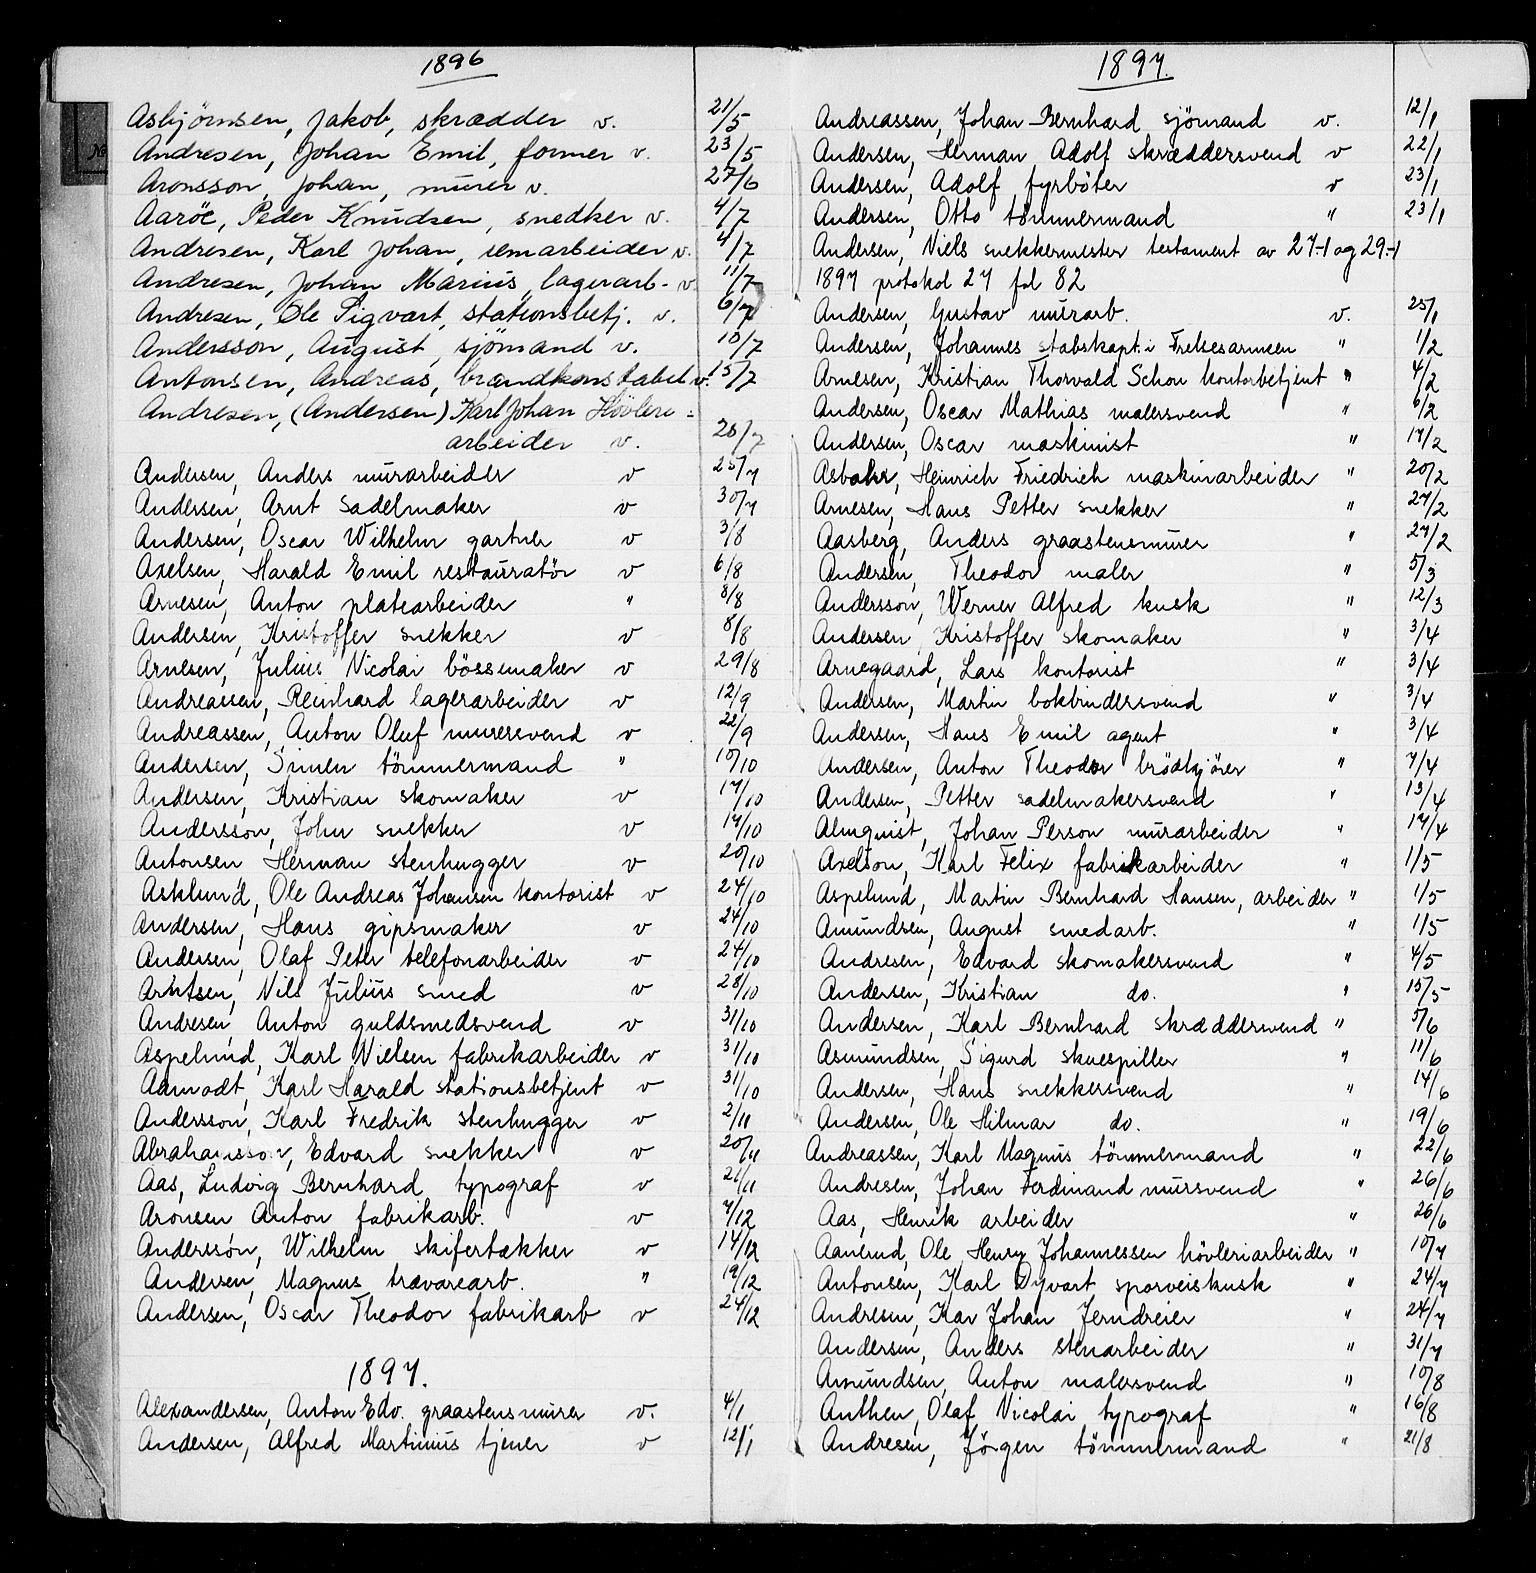 1896
Asbjörnsen, Jakob, skrædder v. 21/5
Andresen, Johan Emil, former v. 23/5
Aronsson, Johan, murer v. 27/6
Aaröe, Peder Knudsen, snedker v. 4/7
Andresen, Karl Johan, remarbeider v. 4/7
Andresen, Johan Marius, lagerarb. v. 11/7
Andresen, Ole Sigvart, stationsbetj. v. 6/7
Andersson, August, sjömand v. 10/7
Antonsen, Andreas, brandkonstabel v. 15/7
Andresen, (Andersen) Karl Johan Hövleri=
arbeider v. 20/7
Andersen, Anders murarbeider v 25/7
Andersen, Arnt sadelmaker v 30/7
Andersen, Oscar Wilhelm gartner v 3/8
Axelsen, Harald Emil restauratör v 6/8
Arnesen, Anton platearbeider " 8/8
Andersen, Kristoffer snekker v 8/8
Arnesen, Julius Nicolai bössemaker v 29/8
Andreassen, Reinhard lagerarbeider v 12/9
Andreassen, Anton Oluf murersvend v 22/9
Andersen, Simen tömmermand " 10/10
Andersen, Kristian skomaker v 17/10
Andersson, John snekker v 17/10
Antonsen Herman stenhugger v 20/10
Asklund, Ole Andreas Johansen kontorist v 24/10
Andersen, Hans gipsmaker v 24/10
Andersen, Olaf Peter telefonarbeider v 24/10
Arntsen, Nils Julius smed v 28/10
Andresen, Anton guldsmedsvend v 31/10
Aspelund, Karl Nielsen fabrikarbeider v 31/10
Aamodt, Karl Harald stationsbetjent v 31/10
Andersson, Karl Fredrik stenhugger v 2/11
Abrahamsson, Edvard snekker v 20/11
Aas, Ludvig Bernhard typograf v 21/11
Aronsen Anton fabrikarb. v 7/12
Anderssón, Wilhelm skifertækker v 14/12
Andersen, Magnus trævarearb. " 19/12
Andersen, Oscar Theodor fabrikarb v 24/12
1897.
Alexandersen, Anton Edv. graastensmurer v. 4/1
Andersen, Alfred Martinius tjener v 12/1
1897.
Andreassen, Johan Bernhard sjömand v. 12/1
Andersen, Herman Adolf skræddersvend v 22/1
Andersen, Adolf fyrböter v 23/1
Andersen, Otto tömmermand " 23/1
Andersen, Niels snekkermester testament av 27-1 og 29-1
1897 protokol 27 fol 82
Andersen, Gustav murarb. v. 25/1
Andersen, Johannes stabskapt. i Frelsesarmeen " 1/2
Arnesen, Kristian Thorvald Schou kontorbetjent " 4/2
Andersen, Oscar Mathias malersvend " 6/2
Andersen, Oscar maskinist " 17/2
Asbahr, Heinrich Friedrich maskinarbeider " 20/2
Arnesen, Hans Petter snekker " 27/2
Aasberg, Anders graastensmurer " 27/2
Andersen, Theodor maler " 5/3
Andersson, Werner Alfred kusk " 12/3
Andersen, Kristoffer skomaker " 3/4
Arnegaard, Lars kontorist " 3/4
Andersen, Martin bokbindersvend " 3/4
Andersen, Hans Emil agent " 3/4
Andersen, Anton Theodor brödkjörer " 7/4
Andersen, Petter sadelmakersvend " 13/4
Almquist, Johan Person murarbeider " 17/4
Axelson, Karl Felix fabrikarbeider " 1/5
Aspelund, Martin Bernhard Hansen, arbeider " 1/5
Amundsen, August smedarb. " 1/5
Andresen, Edvard skomakersvend " 4/5
Andersen, Kristian do. " 15/5
Andersen, Karl Bernhard skræddersvend " 5/6
Asmundsen, Sigurd skuespiller " 11/6
Andersen, Hans snekkersvend " 14/6
Andersen, Ole Hilmar do. " 19/6
Andreassen, Karl Magnus tömmermand " 22/6
Andresen, Johan Ferdinand mursvend " 26/6
Aas, Henrik arbeider " 26/6
Aanerud, Ole Henry Johannessen hövleriarbeider " 10/7
Antonsen, Karl Dyvart sporveiskusk " 24/7
Andresen, Kar Johan Jerndreier " 24/7
Andersen, Anders stenarbeider " 31/7
Amundsen, Anton malersvend " 10/8
Anthen, Olaf Nicolai typograf " 16/8
Andresen, Jörgen tömmermand " 21/8